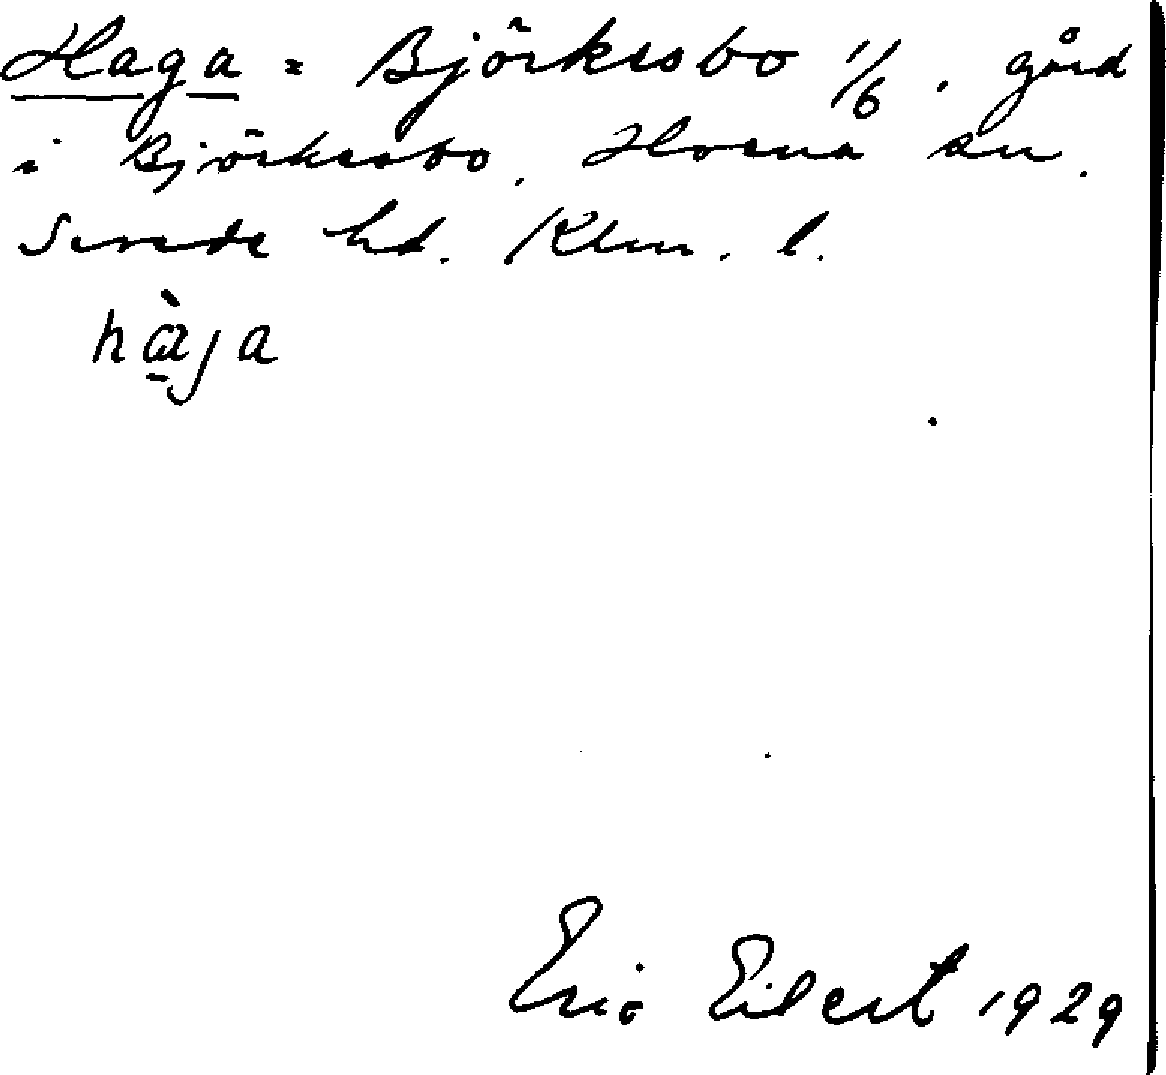 Haga = Björkesbo 1/6. gård
i Björkesbo. Hvena sn.
Sevede hd. Klm. l.
hɑ̠̀ja
Eric Eilert 1929